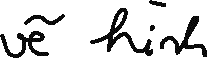 vẽ hình